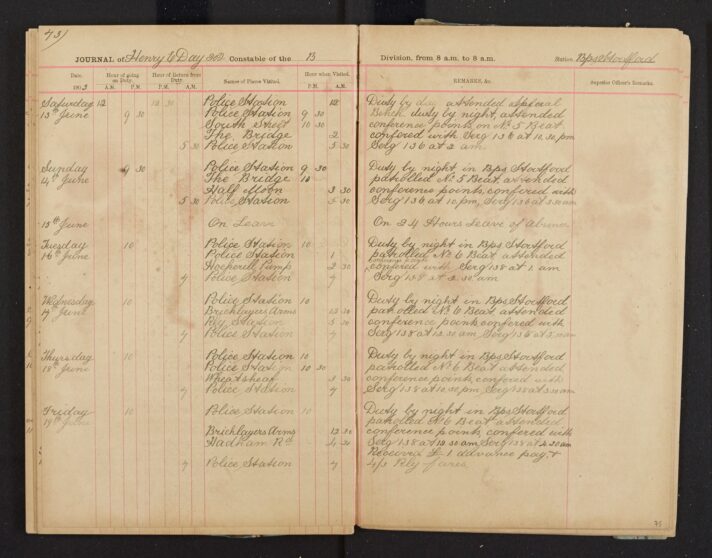 431
JOURNAL of Henry G Day Constable of the B Division, from 8 a.m. to 8 a.m. Station, Bps Stortford
Date. Hour of going on Duty. Hour of Return from Duty Names of Places Visited. Hour when Visited. REMARKS, &c. Superior Officer's Remarks.
1903 A.M. P.M. A.M. P.M. P.M. A.M.
Saturday 12 12 30 Police Station 12 Duty by day attended Special
13th June 9 30 Police Station 9 30 Bench, duty by night, attended
South Street 10 30 conference points on No 5 Beat
The Bridge 2 confered with Serg 136 at 10.30 pm
5 30 Police Station 5 30 Serg 136 at 2 am
Sunday 9 30 Police Station 9 30 Duty by night, in Bps Stortford
14th June The Bridge 10 patrolled No 5 Beat, attended
Half Moon 3 30 conference points, confered with
5 30 Police Station 5 30 Serg 136 at 10 pm, Serg 136 at 3.30 am
15th June On Leave On 24 Hours Leave of Absence
Tuesday 10 Police Station 10 Duty by night in Bps Stortford
16th June Police Station 1 patrolled No 6 Beat attended
Pump 2 30 confered with Serg 138 at 1 am
4 Police Station 4 Serg 138 at 2.30 am
Wednesday 10 Police Station 10 Duty by night in Bps Stortford
17 June Bricklayers Arms 12 30 patrolled No 6 Beat attended
Rly Station 3 30 conference points, confered with
4 Police Station 4 Serg 138 at 12.30 am, Serg 136 at 3.30 am
Thursday 10 Police Station 10 Duty by night in Bps Stortford
18th June Police Station 10 30 patrolled No 6 Beat attended
Wheatsheaf 3 30 conference points, confered with
4 Police Station 4 Serg 138 at 10.30 pm, Serg 138 at 3.30 am
Friday 10 Police Station 10 Duty by night, in Bps Stortford
19th June patrolled No 6 Beat attended
Bricklayers Arms 12 30 conference points, confered with
Hadham Rd 2 30 Serg 138 at 12.30 am, Serg 138 at 2.30 am
Received £1 advance pay, &
4 Police Station 4 4/3 Rly fares
75